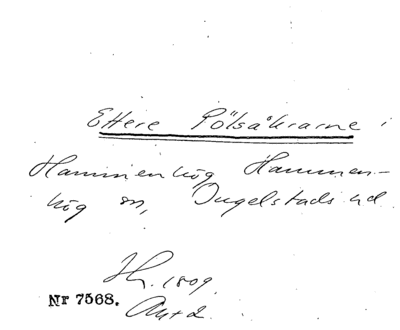 Ettere Pölsåkrarne i
Hammenhög Hammen-
hög sn, Ingelstads hd.
1809.
Nr 7568.